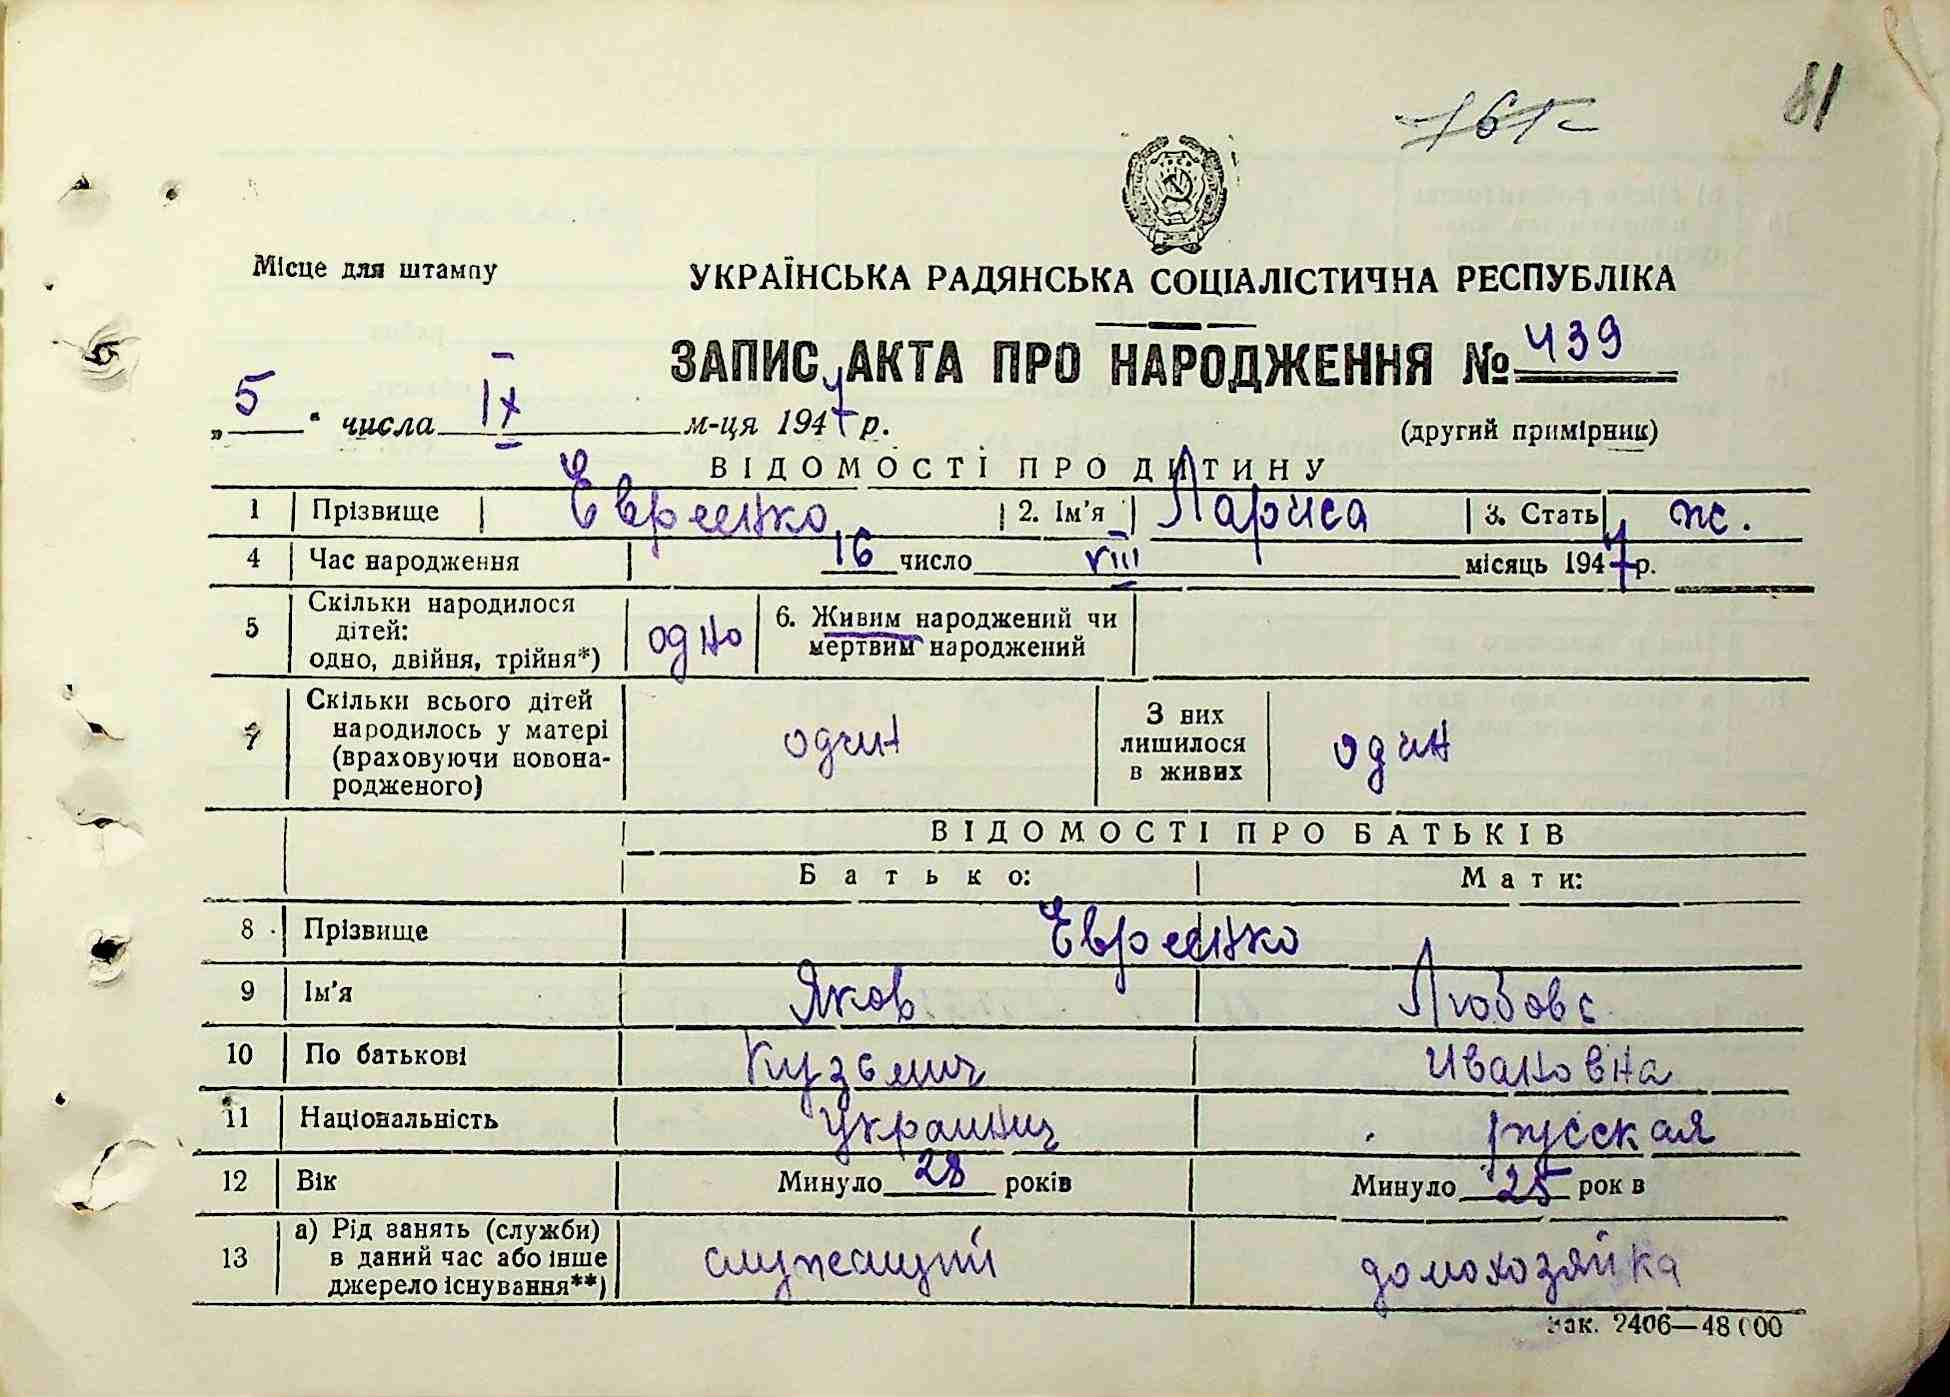 81
161
Місце для штампу
УКРАЇНСЬКА РАДЯНСЬКА СОЦІАЛІСТИЧНА РЕСПУБЛІКА
ЗАПИС АКТА ПРО НАРОДЖЕННЯ № 439
„ 5 " числа IX м-ця 1947 р.
(другий примірник)
ВІДОМОСТІ ПРО ДИТИНУ
1 Прізвище Евреенко 2. Ім'я Лариса 3. Стать ж.
4 Час народження 16 число VIII місяць 1947 р.
5 Скільки народилося дітей: одно, двійня, трійня*) одно 6. Живим народжений чи мертвим народжений
7 Скільки всього дітей народилось у матері (враховуючи новонародженого) один З них лишилося в живих один
ВІДОМОСТІ ПРО БАТЬКІВ
Батько: Мати:
8 Прізвище Евреенко
9 Ім'я Яков Любовь
10 По батькові Кузьмич Ивановна
11 Національність украинец русская
12 Вік Минуло 28 років Минуло 25 рок в
13 а) Рід занять (служби) в даний час або інше джерело існування**) служащий домохозяйка
Зак. 2406—48000